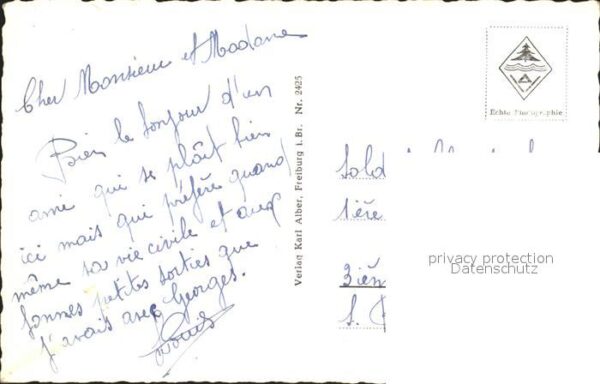 Cher Monsieur et Madame
Bien le bonjour d'un
ami qui se plaît bien
ici mais qui préfère quand
même sa vie civile et aux
bonnes petites sorties que
j'avais avec Georges.
Louis
Verlag Karl Alber, Freiburg i. Br. Nr. 2425
Echte Photographie
Sold
1ère
3ièm
S.
privacy protection
Datenschutz